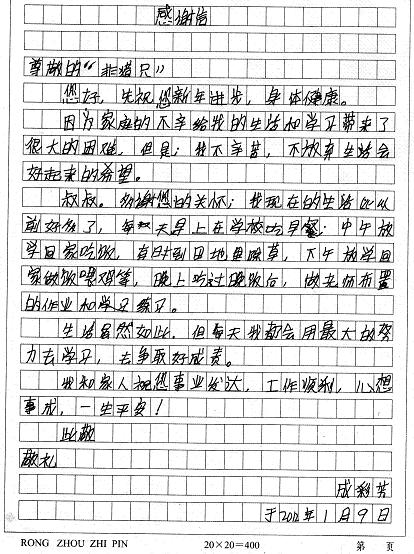 感谢信
尊敬的“非塔尺”
您好，先祝您新年进步，身体健康。
因为家庭的不幸给我的生活和学习带来了
很大的困难，但是；我不辛苦，不放弃生活会
好起来的希望。
叔叔。多谢您的关怀；我现在的生活比以
前好多了，每天早上在学校吃早餐；中午放
学回家吃饭，有时到田地里除草，下午放学回
家做饭喂鸡等，晚上吃过晚饭后，做老师布置
的作业和学习练习。
生活虽然如此，但每天我都会用最大的努
力去学习，去争取好成责。
我和家人祝您事业发达，工作顺利，心想
事成，一生平安！
此敬
敬礼
成彩芳
于2012年1月9日
RONG ZHOU ZHI PIN 20×20=400 第 页